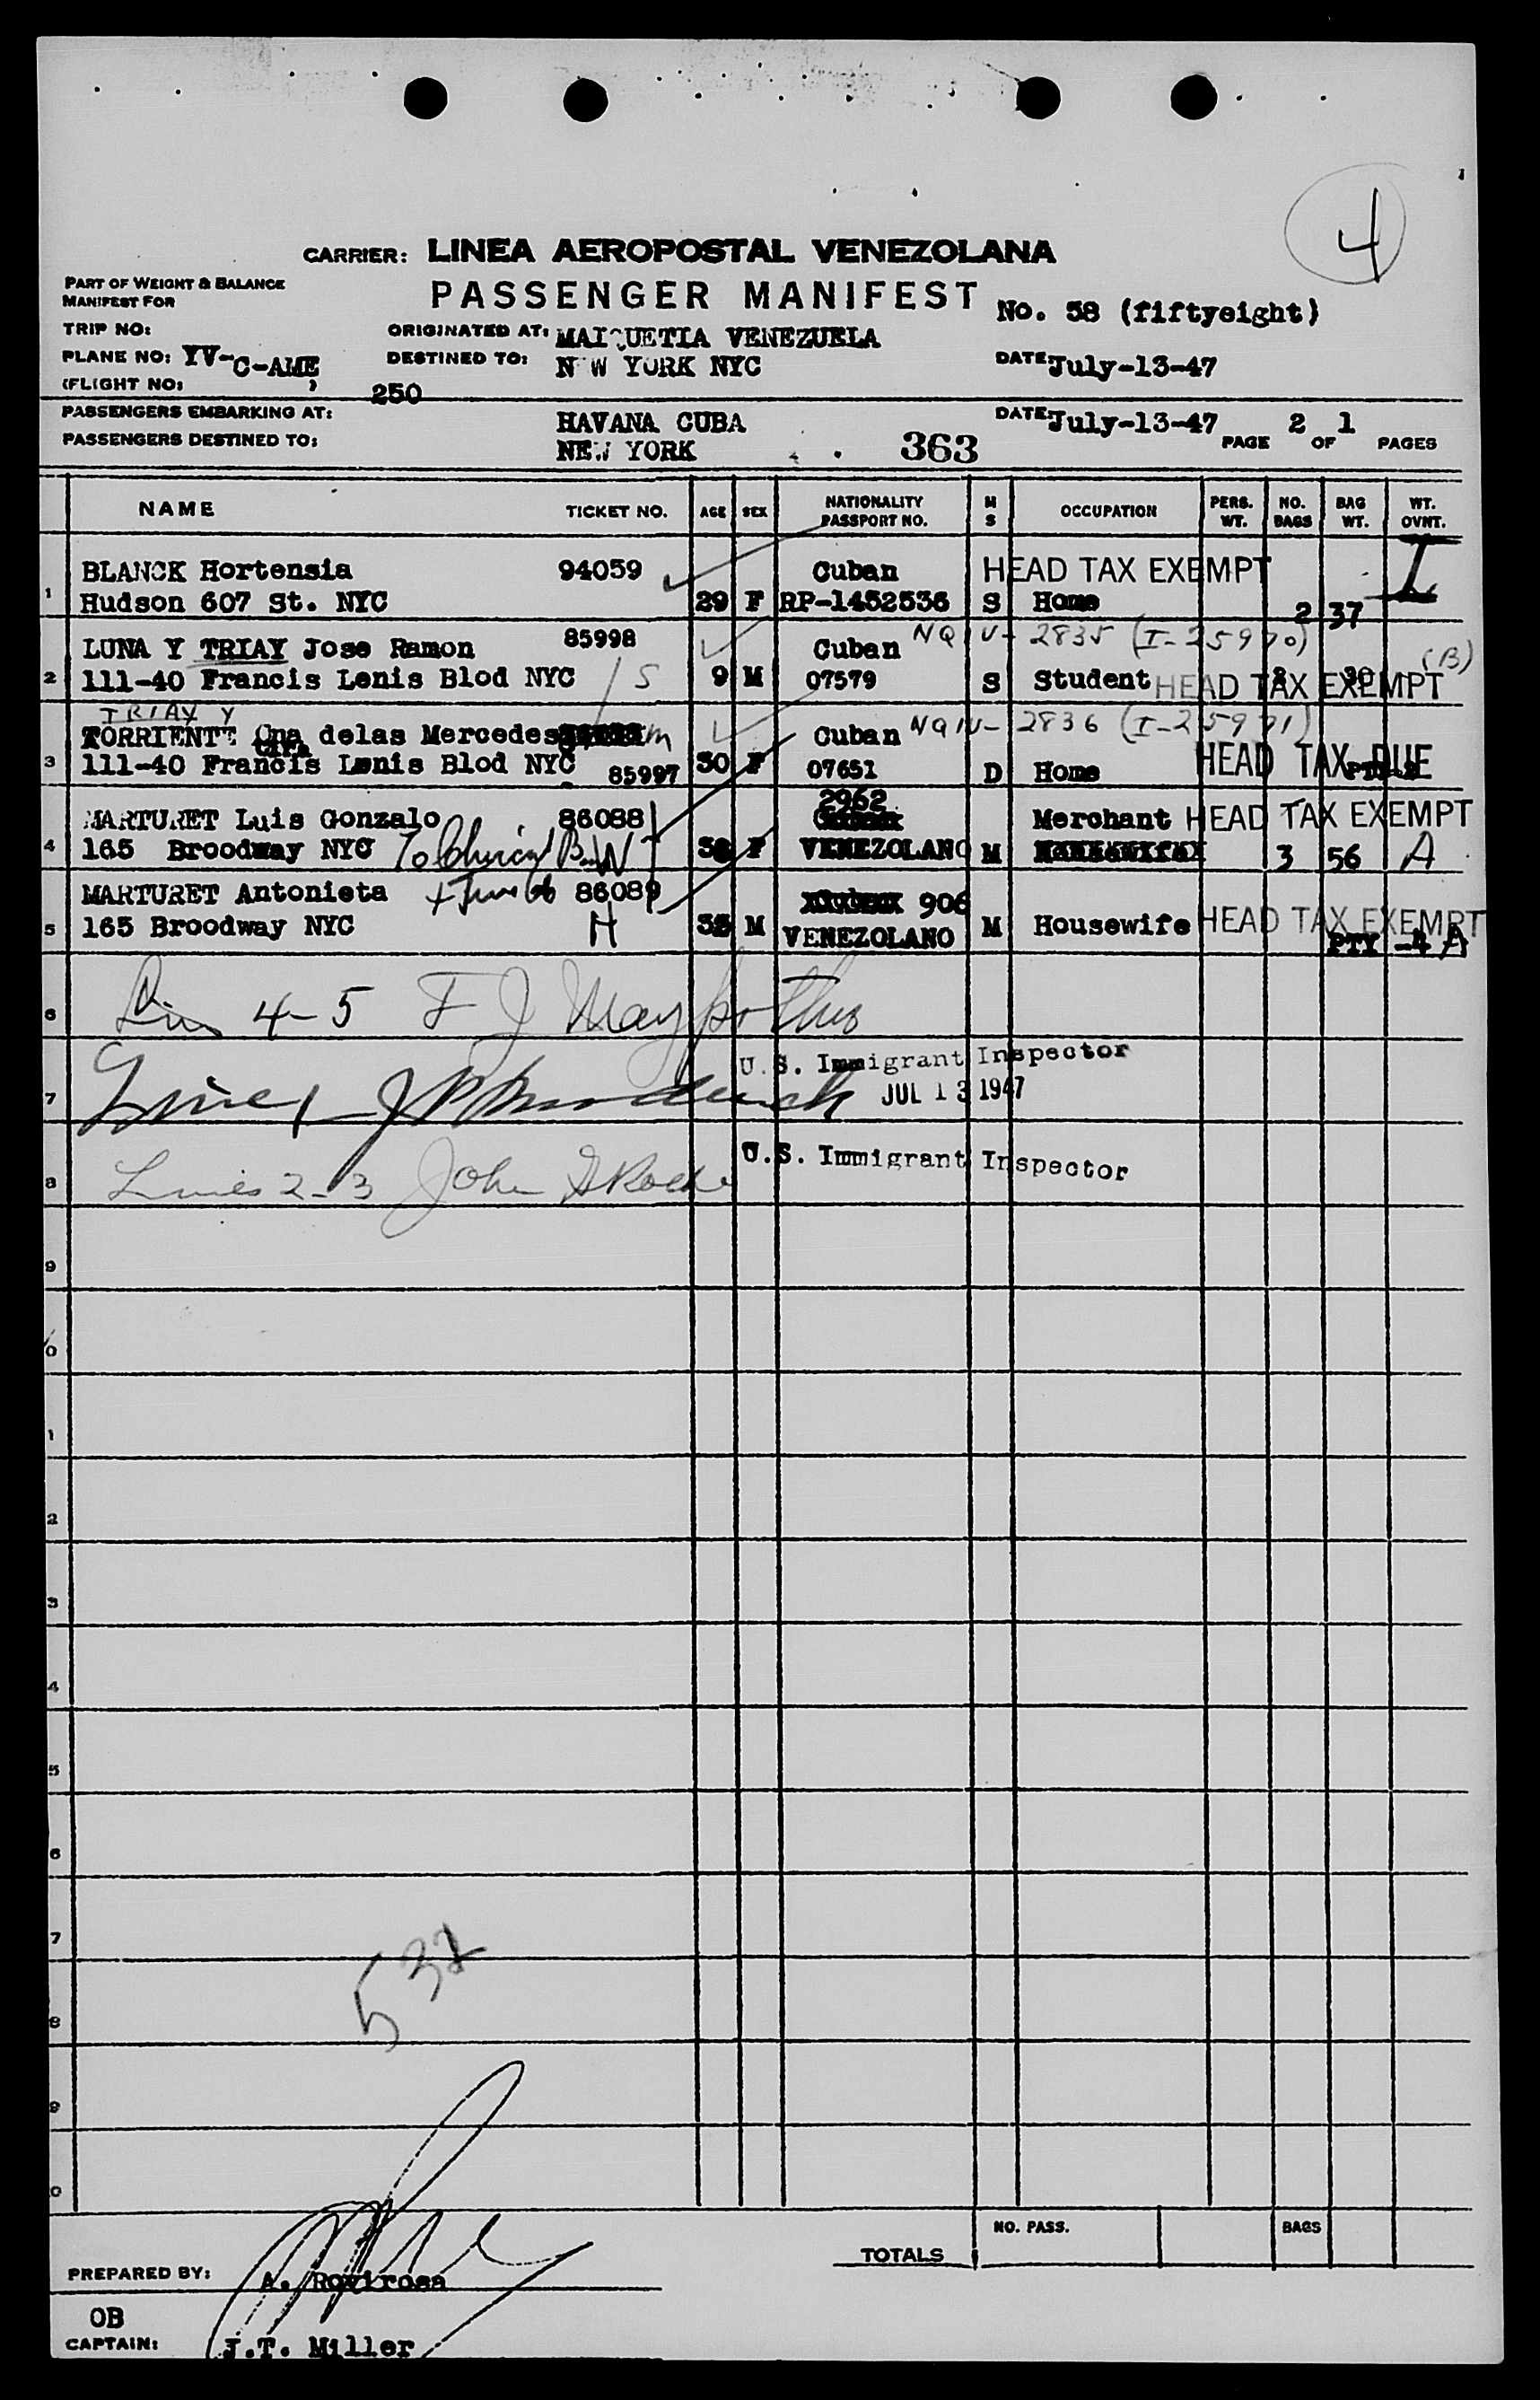 4
CARRIER: LINEA AEROPOSTAL VENEZOLANA
PART OF WEIGHT & BALANCE
MANIFEST FOR
PASSENGER MANIFEST No. 58 (fiftyeight)
TRIP NO:
ORIGINATED AT: MAIQUETIA VENEZUELA
PLANE NO: YV-C-AME
DESTINED TO: NEW YORK NYC
DATE: July-13-47
(FLIGHT NO: )
250
PASSENGERS EMBARKING AT: HAVANA CUBA
DATE: July-13-47 PAGE 2 OF 1 PAGES
PASSENGERS DESTINED TO: NEW YORK
363
NAME TICKET NO. AGE SEX NATIONALITY PASSPORT NO. M S OCCUPATION PERS. WT. NO. BAGS BAG WT. WT. OVNT.
BLANCK Hortensia 94059 Cuban HEAD TAX EXEMPT I
1 Hudson 607 St. NYC 29 F RP-1452536 S Home 2 37
LUNA Y TRIAY Jose Ramon 85998 Cuban NQIV-2835 (I-25970)
2 111-40 Francis Lenis Blod NYC S 9 M 07579 S Student HEAD TAX EXEMPT (B)
TRIAY Y
TORRIENTE delas Mercedes m Cuban NQIV-2836 (I-25971)
3 111-40 Francis Lenis Blod NYC 85997 30 F 07651 D Home HEAD TAX DUE
2962
MARTURET Luis Gonzalo 86088 Merchant HEAD TAX EXEMPT
4 165 Broodway NYC F VENEZOLANO M 3 56 A
MARTURET Antonieta 86089 906
5 165 Broodway NYC H M VENEZOLANO M Housewife HEAD TAX EXEMPT
PTY -4 A
6 4-5 F J
U.S. Immigrant Inspector
7 Line 1 JUL 13 1947
U.S. Immigrant Inspector
8 Lines 2-3 John
9
0
1
2
3
4
5
6
7
532
8
9
0
NO. PASS. BAGS
TOTALS
PREPARED BY: A. Rovirosa
OB
CAPTAIN: J.T. Miller